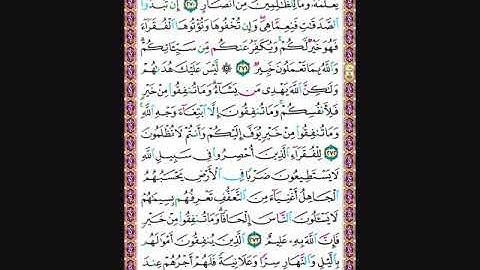 يَعْلَمُهُۥ وَمَا لِلظَّٰلِمِينَ مِنْ أَنصَارٍ ٢٧٠ إِن تُبْدُوا۟
ٱلصَّدَقَٰتِ فَنِعِمَّا هِىَ وَإِن تُخْفُوهَا وَتُؤْتُوهَا ٱلْفُقَرَآءَ
فَهُوَ خَيْرٌ لَّكُمْ وَيُكَفِّرُ عَنكُم مِّن سَيِّـَٔاتِكُمْ
وَٱللَّهُ بِمَا تَعْمَلُونَ خَبِيرٌ ٢٧١ ۞ لَّيْسَ عَلَيْكَ هُدَىٰهُمْ
وَلَٰكِنَّ ٱللَّهَ يَهْدِى مَن يَشَآءُ وَمَا تُنفِقُوا۟ مِنْ خَيْرٍ
فَلِأَنفُسِكُمْ وَمَا تُنفِقُونَ إِلَّا ٱبْتِغَآءَ وَجْهِ ٱللَّهِ
وَمَا تُنفِقُوا۟ مِنْ خَيْرٍ يُوَفَّ إِلَيْكُمْ وَأَنتُمْ لَا تُظْلَمُونَ
٢٧٢ لِلْفُقَرَآءِ ٱلَّذِينَ أُحْصِرُوا۟ فِى سَبِيلِ ٱللَّهِ
لَا يَسْتَطِيعُونَ ضَرْبًا فِى ٱلْأَرْضِ يَحْسَبُهُمُ
ٱلْجَاهِلُ أَغْنِيَآءَ مِنَ ٱلتَّعَفُّفِ تَعْرِفُهُم بِسِيمَٰهُمْ
لَا يَسْـَٔلُونَ ٱلنَّاسَ إِلْحَافًا وَمَا تُنفِقُوا۟ مِنْ خَيْرٍ
فَإِنَّ ٱللَّهَ بِهِۦ عَلِيمٌ ٢٧٣ ٱلَّذِينَ يُنفِقُونَ أَمْوَٰلَهُم
بِٱلَّيْلِ وَٱلنَّهَارِ سِرًّا وَعَلَانِيَةً فَلَهُمْ أَجْرُهُمْ عِندَ